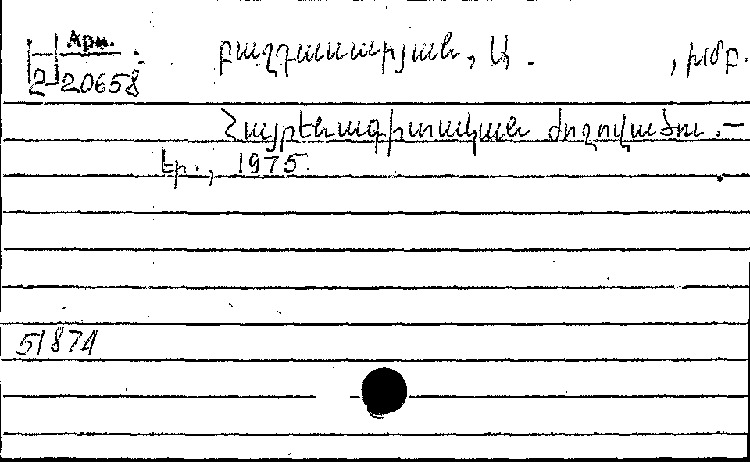 Արև.
2 20658
բաղդասարյան, Ա. , խմբ.
Հայրենագիտական ժողովածու.—
Եր., 1975.
51874